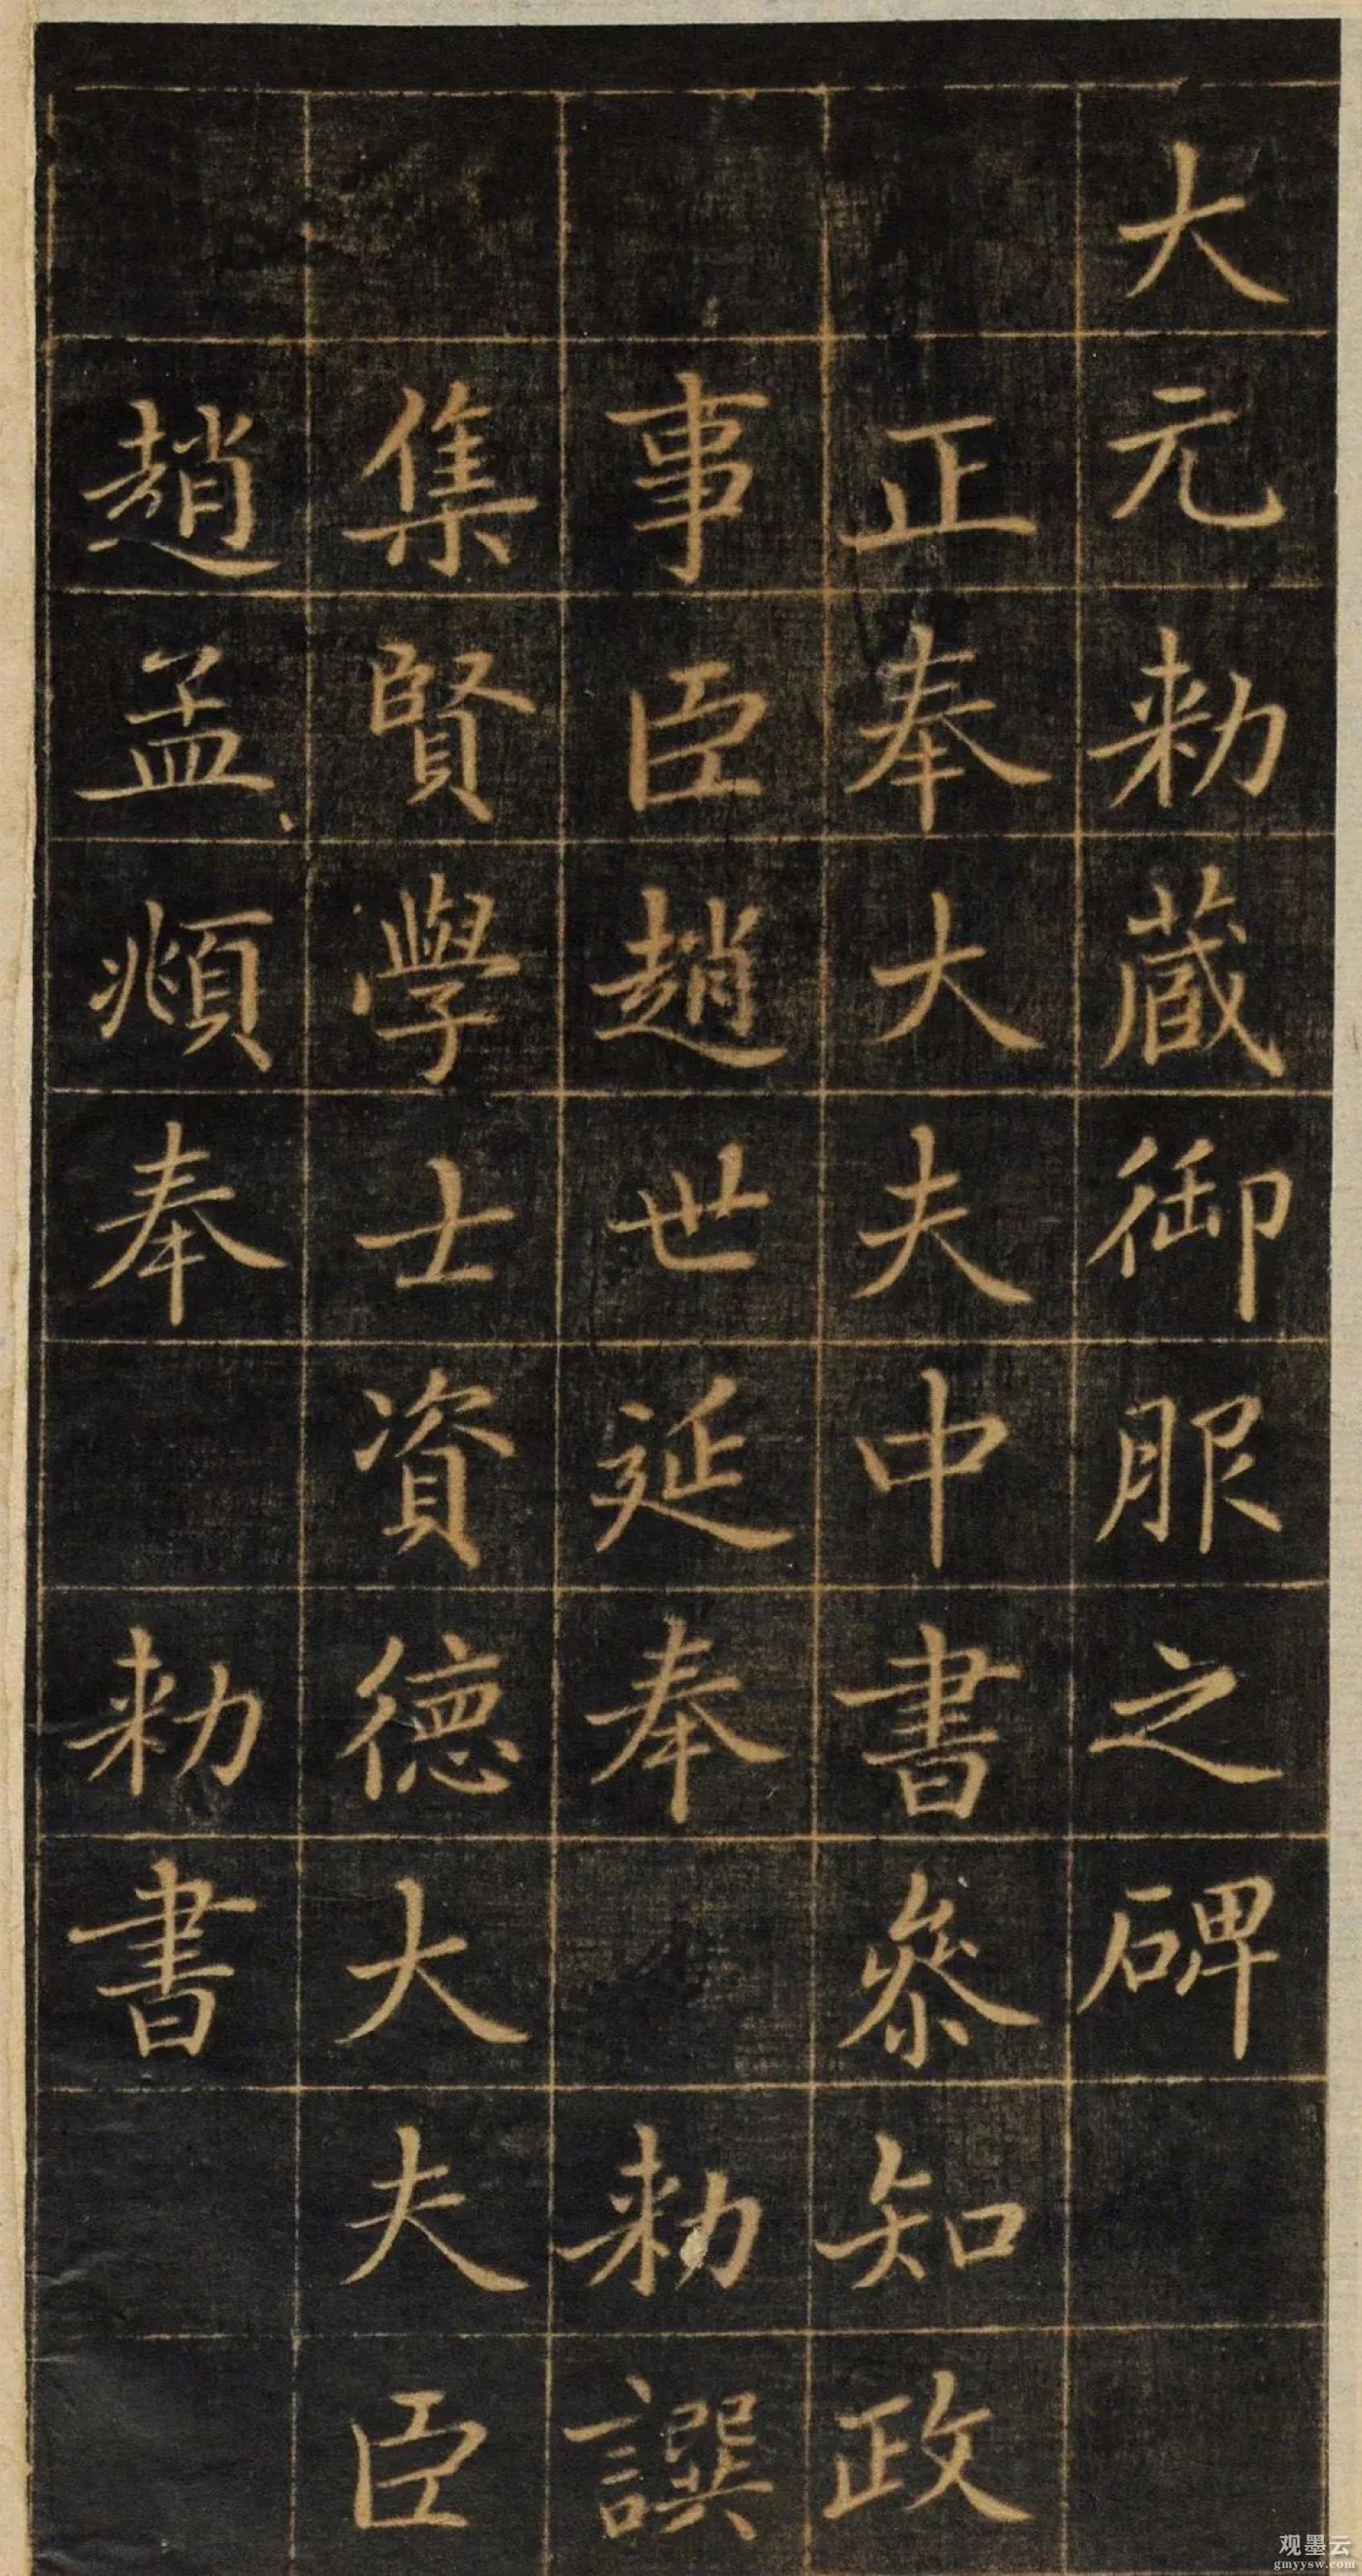 大元勑蔵御服之碑
正奉大夫中書叅知政
事臣趙世延奉 勑譔
集賢學士資德大夫臣
趙孟頫奉 勑書
观墨云
gmyysw.com